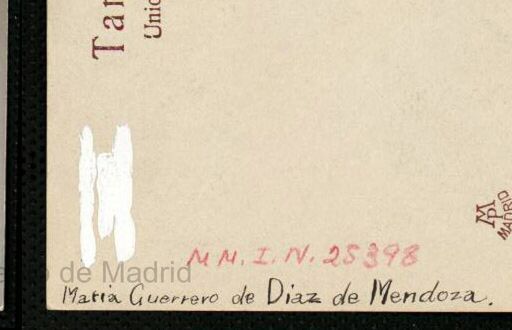 Tar
Unio
MP
MADRID
M.M. I. N. 25398
o de Madrid
María Guerrero de Díaz de Mendoza.